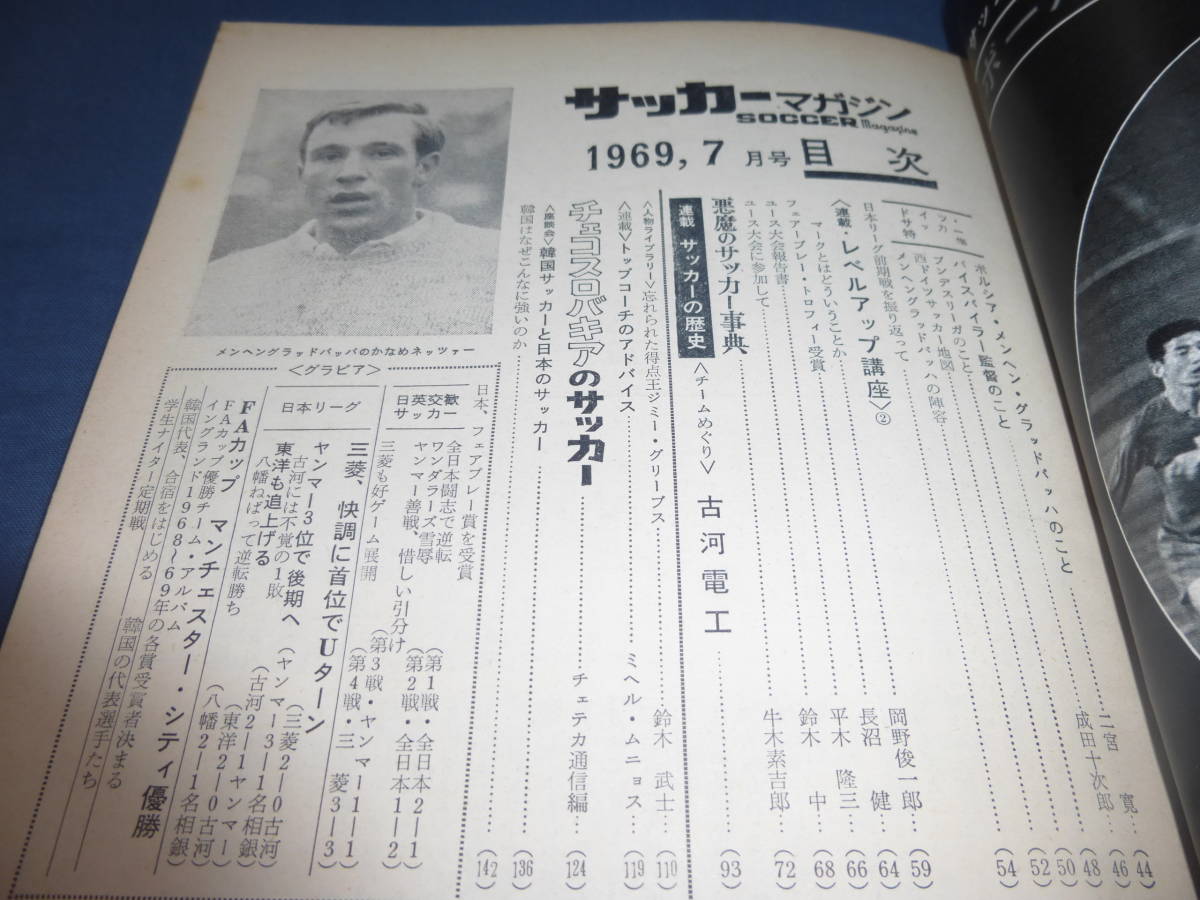 サッカーマガジン
SOCCER Magazine
1969,7月号 目次
ボルシア・メンヘン・グラッドバッハのこと
二宮 寛 (44)
バイスバイラー監督のこと
成田十次郎 (46)
ブンデスリーガのこと (48)
西ドイツサッカー地図 (50)
メンヘングラッドバッハの陣容 (52)
日本リーグ前期戦を振り返って (54)
<連載・レベルアップ講座>②
岡野俊一郎 (59)
マークとはどういうことか
長沼 健 (64)
フェアープレー・トロフィー受賞
平木 隆三 (66)
ユース大会報告書
鈴木 中 (68)
ユース大会に参加して
牛木素吉郎 (72)
悪魔のサッカー事典
連載 サッカーの歴史
<チームめぐり> 古河電工 (93)
<人物ライブラリー>忘れられた得点王ジミー・グリーブス
鈴木 武士 (110)
<連載>トップコーチのアドバイス
ミヘル・ムニョス (119)
チェコスロバキアのサッカー
チェテカ通信編 (124)
<座談会>韓国サッカーと日本のサッカー (136)
韓国はなぜこんなに強いのか (142)
メンヘングラッドバッハのかなめネッツァー
<グラビア>
日本、フェアプレー賞を受賞
日英交歓サッカー
全日本闘志で逆転 (第1戦・全日本2—1)
ワンダラーズ雪辱 (第2戦・全日本1—2)
ヤンマー善戦、惜しい引分け (第3戦・ヤンマー1—1)
三菱も好ゲーム展開 (第4戦・三菱3—3)
日本リーグ
三菱、快調に首位でUターン (三菱2—0古河)
ヤンマー3位で後期へ (ヤンマー3—1名相銀)
古河には不覚の1敗 (古河2—1ヤンマー)
東洋も追上げる (東洋2—0古河)
八幡ねばって逆転勝ち (八幡2—1名相銀)
FAカップ マンチェスター・シティ優勝
FAカップ優勝チーム・アルバム
イングランド1968〜69年の各賞受賞者決まる
韓国代表、合宿をはじめる 韓国の代表選手たち
学生ナイター定期戦